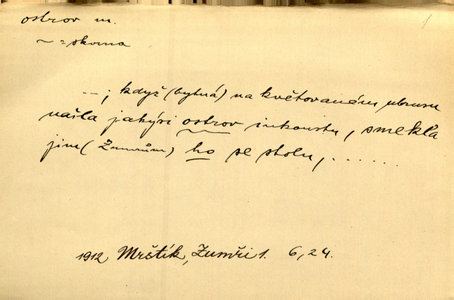 ostrov m.
1
~ = skvrna
– ; když (bytná) na květovaném ubrusu
našla jakýsi ostrov inkoustu, smekla
jim (Zumrům) ho se stolu, . . . . . .
1912 Mrštík, Zumři 1. 6, 24.